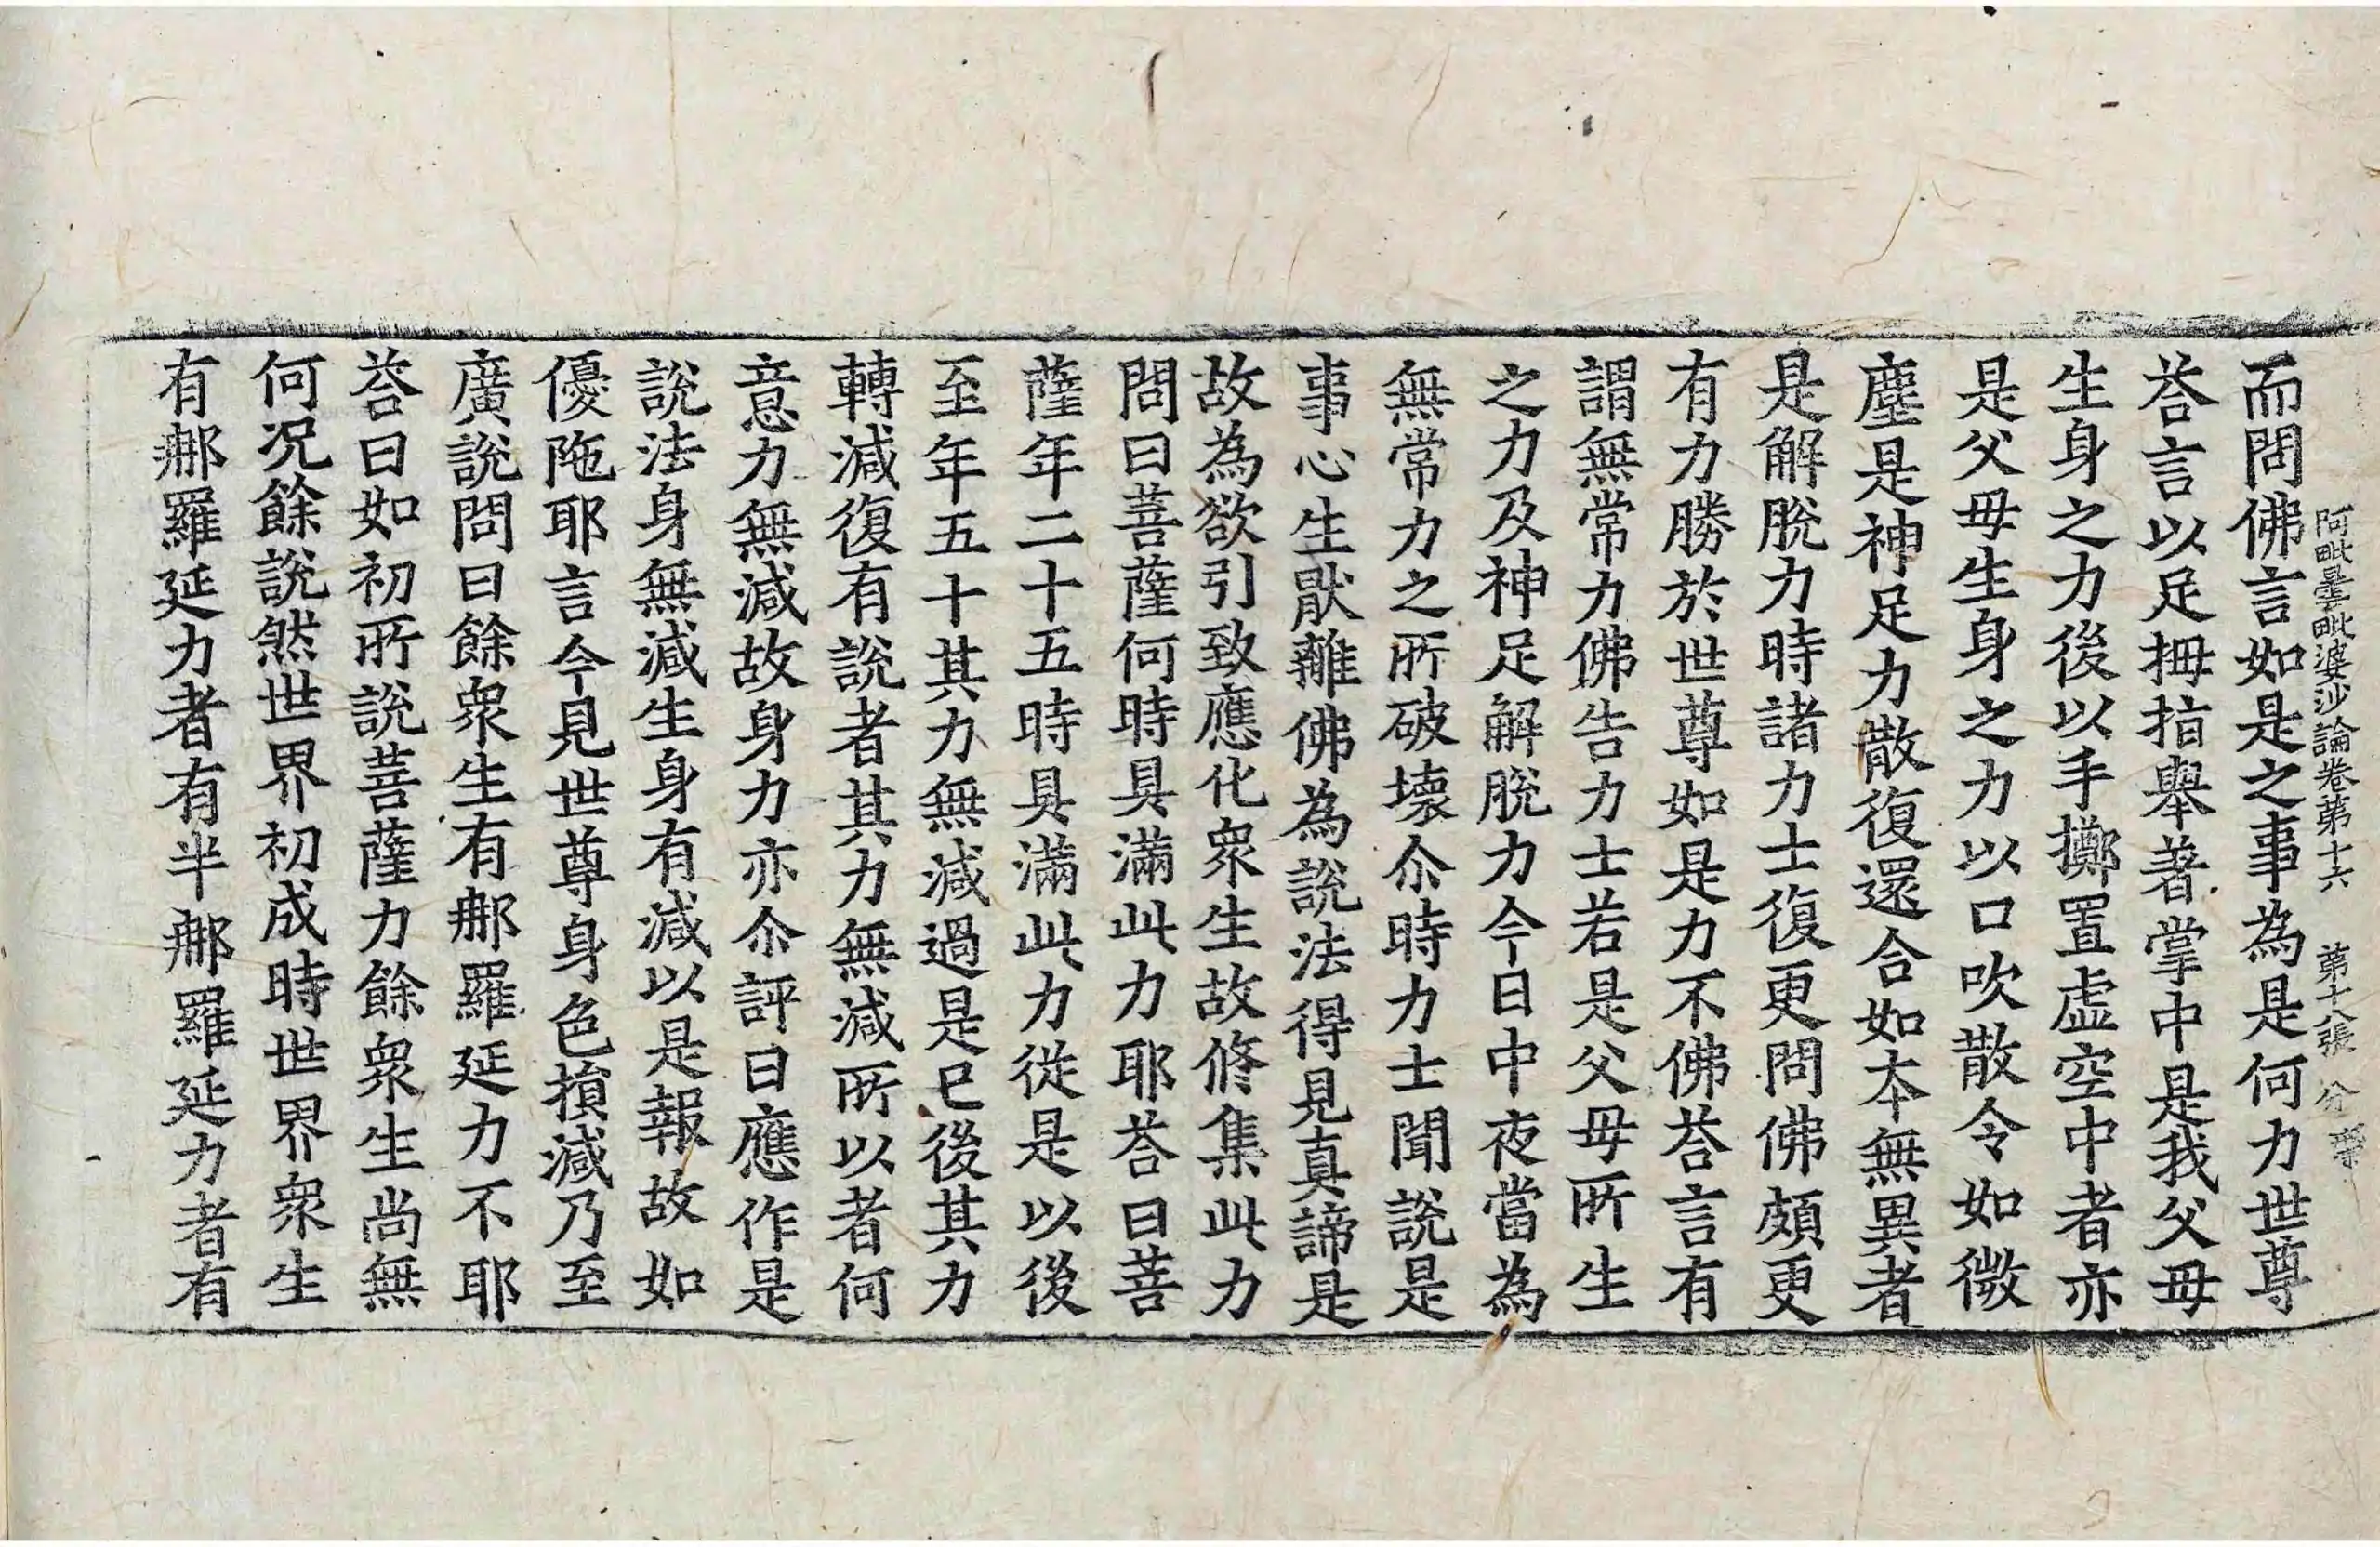 阿毗曇毗婆沙論卷第十六　第十八張　分
而問佛言如是之事為是何力世尊
荅言以足拇指舉著掌中是我父母
生身之力後以手擲置虛空中者亦
是父母生身之力以口吹散令如微
塵是神足力散復還合如本無異者
是解脫力時諸力士復更問佛頗更
有力勝於世尊如是力不佛荅言有
謂無常力佛告力士若是父母所生
之力及神足解脫力今日中夜當為
無常力之所破壞尒時力士聞說是
事心生厭離佛為說法得見真諦是
故為欲引致應化衆生故修集此力
問曰菩薩何時具滿此力耶荅曰菩
薩年二十五時具滿此力從是以後
至年五十其力無減過是已後其力
轉減復有說者其力無減所以者何
意力無減故身力亦尒評曰應作是
說法身無減生身有減以是報故如
優陁耶言今見世尊身色損減乃至
廣說問曰餘衆生有那羅延力不耶
荅曰如初所說菩薩力餘衆生尚無
何況餘說然世界初成時世界衆生
有那羅延力者有半那羅延力者有